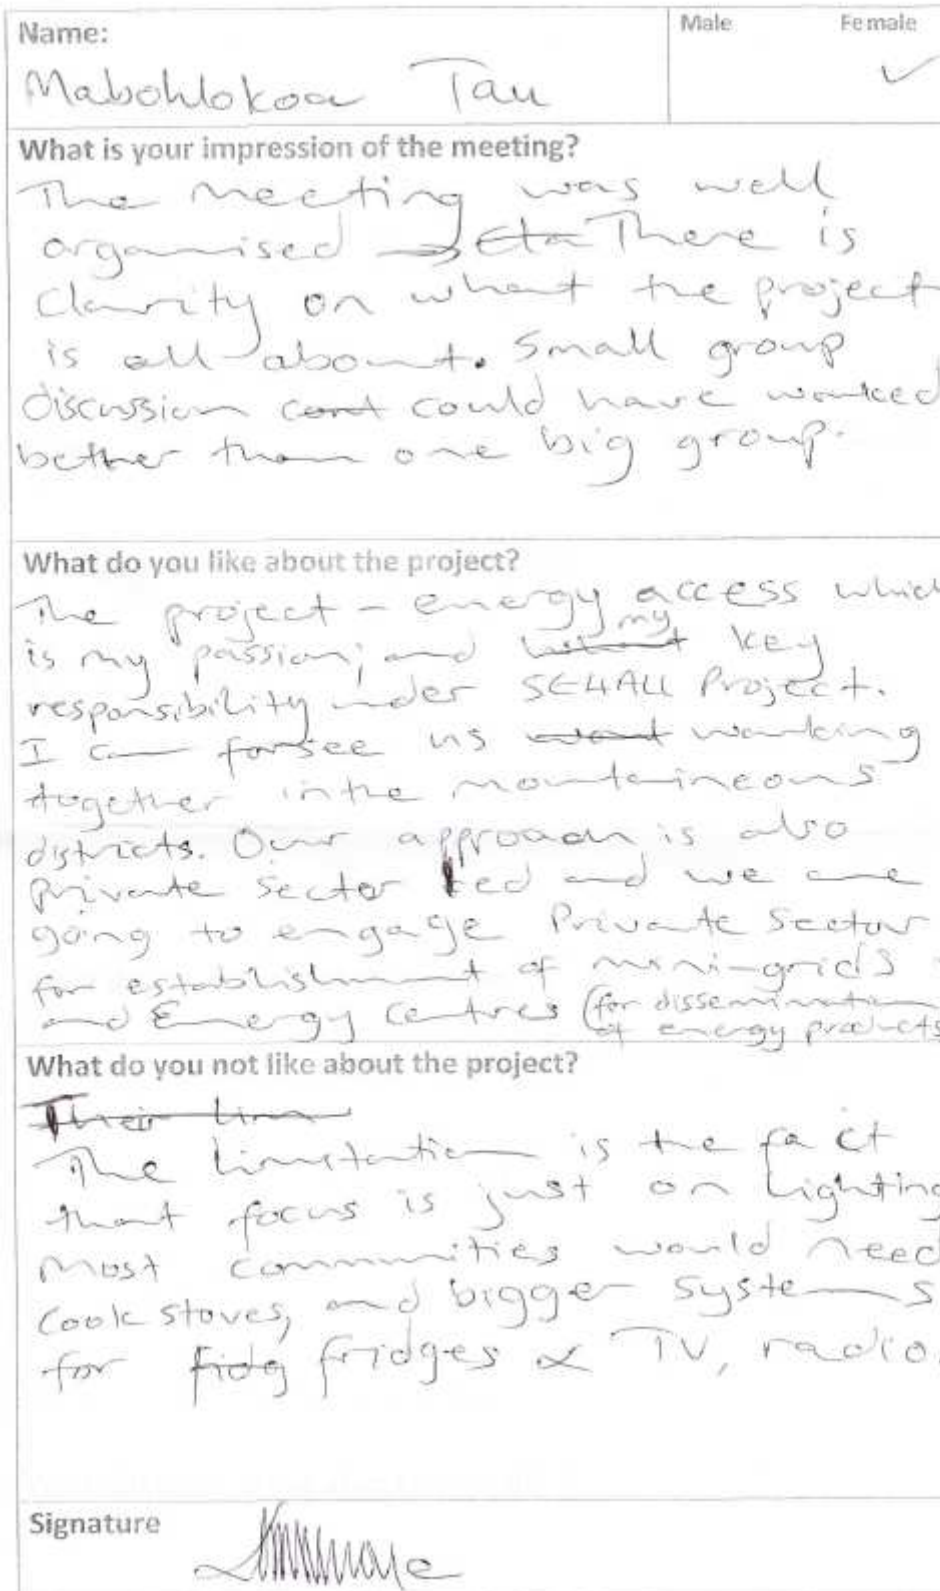 Name:
Male Female
Mabohlokoa Tau
✓
What is your impression of the meeting?
The meeting was well
organised There is
Clarity on what the project
is all about. Small group
discussion could have worked
better than one big group.
What do you like about the project?
The project - energy access which
is my passion; and my key
responsibility under SE4ALL Project.
I can forsee us working
together in the mountaineous
districts. Our approach is also
private sector led and we are
going to engage Private Sector
for establishment of mini-grids
and Energy Centres (for dissemination
of energy products
What do you not like about the project?
Their lim
The limitation is the fact
that focus is just on Lighting
Most communities would need
Cook stoves, and bigger systems
for fridges & TV, radio.
Signature